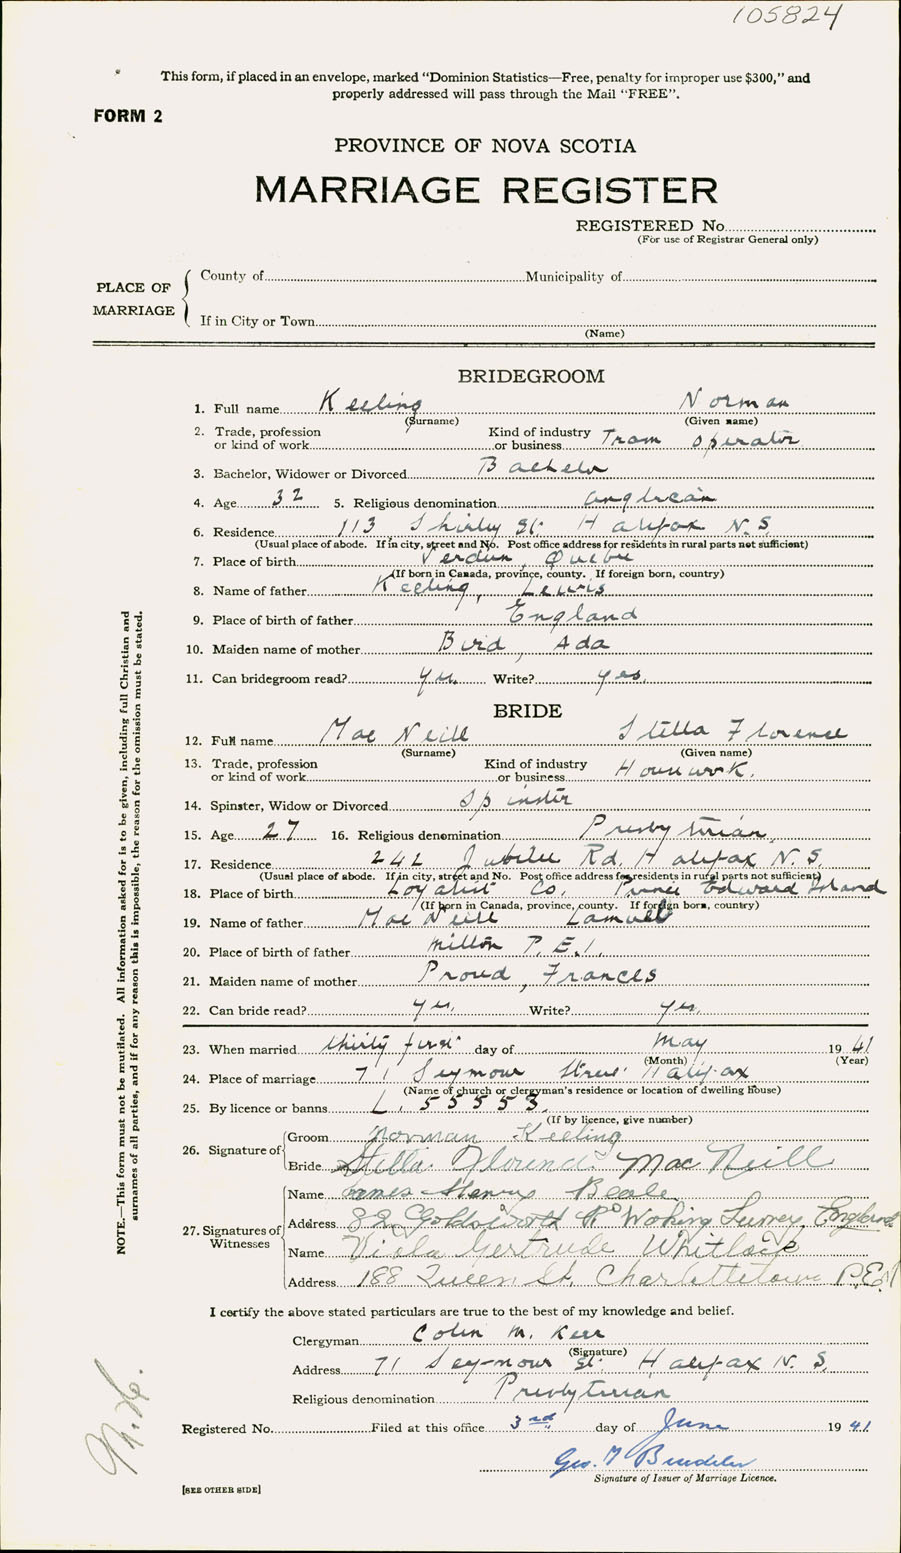 105824
This form, if placed in an envelope, marked “Dominion Statistics—Free, penalty for improper use $300,” and
properly addressed will pass through the Mail “FREE”.
FORM 2
PROVINCE OF NOVA SCOTIA
MARRIAGE REGISTER
REGISTERED No.
(For use of Registrar General only)
PLACE OF MARRIAGE
County of Municipality of
If in City or Town
(Name)
BRIDEGROOM
1. Full name Keeling Norman
(Surname) (Given name)
2. Trade, profession or kind of work Kind of industry or business Tram operator
3. Bachelor, Widower or Divorced Bachelor
4. Age 32 5. Religious denomination Anglican
6. Residence 113 Shirley St. Halifax N.S.
(Usual place of abode. If in city, street and No. Post office address for residents in rural parts not sufficient)
7. Place of birth Verdun, Quebec
(If born in Canada, province, county. If foreign born, country)
8. Name of father Keeling, Lewis
9. Place of birth of father England
10. Maiden name of mother Bird, Ada
11. Can bridegroom read? yes. Write? yes.
BRIDE
12. Full name Mac Neill Stella Florence
(Surname) (Given name)
13. Trade, profession or kind of work Kind of industry or business Housework.
14. Spinster, Widow or Divorced Spinster
15. Age 27 16. Religious denomination Presbyterian
17. Residence 242 Jubilee Rd. Halifax N.S.
(Usual place of abode. If in city, street and No. Post office address for residents in rural parts not sufficient)
18. Place of birth Loyalist Co. Prince Edward Island
(If born in Canada, province, county. If foreign born, country)
19. Name of father Mac Neill Lamuel
20. Place of birth of father Milton P.E.I.
21. Maiden name of mother Proud, Frances
22. Can bride read? yes. Write? yes.
23. When married thirty first day of May 1941
(Month) (Year)
24. Place of marriage 71 Seymour Street Halifax
(Name of church or clergyman’s residence or location of dwelling house)
25. By licence or banns L. 55553.
(If by licence, give number)
26. Signature of
Groom Norman Keeling
Bride Stella Florence MacNeill
27. Signatures of Witnesses
Name Henry Beale
Address 82 Goldsworth Rd Woking Surrey, England
Name Viola Gertrude Whitlock
Address 188 Queen St. Charlottetown P.E.I
I certify the above stated particulars are true to the best of my knowledge and belief.
Clergyman Colin M. Kerr
(Signature)
Address 71 Seymour St. Halifax N.S.
Religious denomination Presbyterian
Registered No. Filed at this office 3rd day of June 1941
Geo. M
Signature of Issuer of Marriage Licence.
[SEE OTHER SIDE]
NOTE.—This form must not be mutilated. All information asked for is to be given, including full Christian and
surnames of all parties, and if for any reason this is impossible, the reason for the omission must be stated.